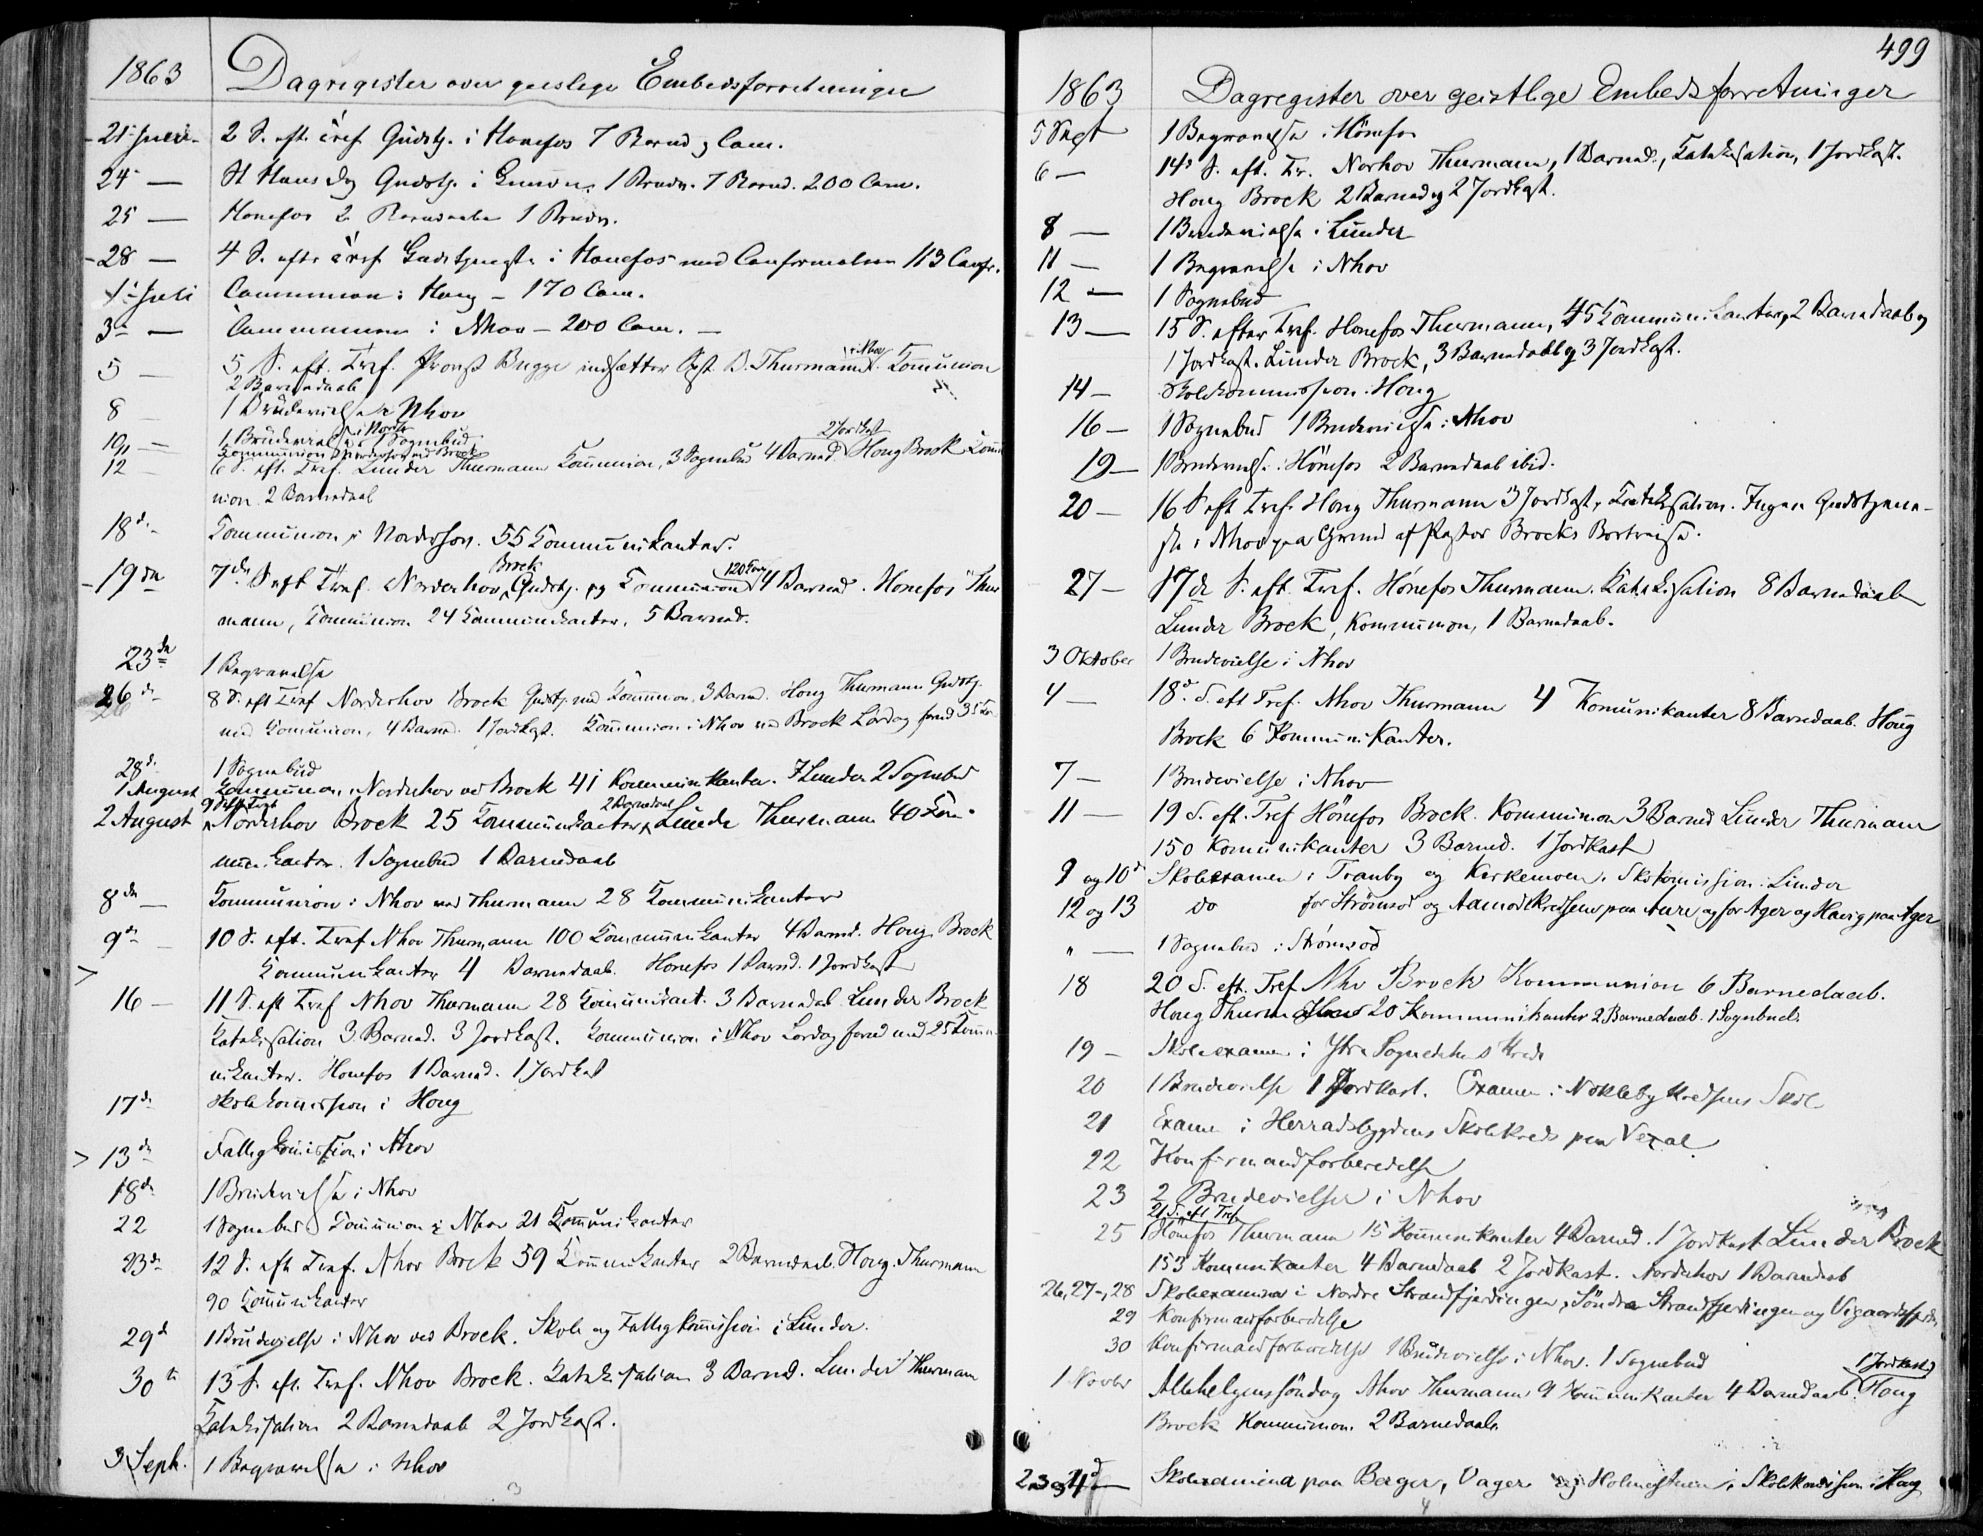 1863 Dagregister over geistlige Embedsforretninger
21 Juni 2 S. eft. Tref. Gudstj. i Hønefos 7 Barned. Com.
24 — St Hans Dag Gudstj. i 1 Brudev. 7 Barned. 200 Com.
25 — Hønefos 2 Barnedaab 1 Brudev.
28 — 4 S. efter Tref Gudstjeneste i Hønefos med Confirmation 113 Confir.
1 Juli Communion i Houg — 170 Com.
3 — Communion i Nhov — 200 Com. —
5 — 5 S. eft. Tref. Provst Bugge indsætter Spst D. Thurmann i Nhov. Kommunion
2 Barnedaab
8 — 1 Brudevielse i Nhov
10 — 1 Brudevielse i Norder 1 Sognebud
Kommunion i Norderhov ved Brock 2 Jordkast
12 — 6 S. eft. Tref. Lunder Thurmann Kommunion, 3 Sognebud 4 Barned. Houg Brock Kommu
nion. 2 Barnedaab
18de Kommunion i Norderhov. 55 Kommunikanter.
19de 7de S eft Tref. Norderhov, Brock Gudstj. og Kommunion 120 Kom 4 Barned. Hønefos Thur
mann, Kommunion 24 Kommunikanter, 5 Barned.
23de 1 Begravelse
26de 8 S. eft Tref Norderhov Brock Gudstj. med Kommunion, 3 Barned. Houg Thurmann Gudstj.
med Kommunion, 4 Barned. 1 Jordkast. Kommunion i Nhov ved Brock Lördag forud 35 Kom
28de 1 Sognebud
1 August Kommunion i Norderhov ved Brock 41 Kommunikanter. I Lunder 2 Sognebud
2 August 9 S eft Tref Norderhov Brock 25 Kommunikanter, 2 Barnedaab Lunder Thurmann 40 Kom-
munikanter. 1 Sognebud 1 Barnedaab
8de — Kommunion i Nhov ved Thurmann 28 Kommunikanter
9de — 10 S. eft. Tref Nhov Thurmann 100 Kommunikanter 4 Barned. Houg Brock
Kommunikanter 4 Barnedaab. Hønefos 1 Barned. 1 Jordkast
16 — 11 S. eft Tref Nhov Thurmann 28 Kommunikant. 3 Barnedab. Lunder Brock
Katekisation 3 Barned. 3 Jordkast. Kommunion i Nhov Lordag forud med 25 Kommu
nikanter. Honefos 1 Barned. 1 Jordkast
17de Skolekommission i Houg
13de Fattigkommission i Nhov
18de 1 Brudevielse i Nhov
22 1 Sognebud Kommunion i Nhov 21 Kommunikanter
23de 12 S. eft Tref. Nhov Brock 59 Kommunikanter 2 Barnedaab. Houg. Thurmann
90 Kommunikanter
29de 1 Brudevielse i Nhov ved Brock. Skole og Fattigkommission i Lunder.
30te 13 S. eft. Tref. Nhov Brock. Katekisation 3 Barned. Lunder Thurmann
Katekisation 2 Barnedaab 2 Jordkast.
3 Septb. 1 Begravelse i Nhov
499
1863 Dagregister over geistlige Embedsforretninger
5 Sept 1 Begravelse i Hönefos
6 — 14de S. eft. Tr. Norhov Thurmann, 1 Barned., Katekisation, 1 Jordkast.
Houg Brock 2 Barned og 2 Jordkast.
8 — 1 Brudevielse i Lunder
11 — 1 Begravelse i Nhov
12 — 1 Sognebud
13 — 15 S. efter Tref. Honefos Thurmann, 45 Kommunikanter, 2 Barnedaab og
1 Jordkast. Lunder Brock, 3 Barnedaab og 3 Jordkast.
14 — Skolekommission i Houg
16 — 1 Sognebud 1 Brudevielse i Nhov
19 — 1 Brudevielse i Hönefos 2 Barnedaab ibid.
20 — 16 S eft Tref. Houg Thurmann 3 Jordkast, Katekisation. Ingen Gudstjene-
ste i Nhov paa Grund af Pastor Brocks Bortreise.
27 — 17de S. eft. Tref. Hønefos Thurmann. Katekisation 8 Barnedaab
Lunder Brock, Kommunion, 1 Barnedaab.
3 Oktober 1 Brudevielse i Nhov
4 — 18de S. eft Tref. Nhov Thurmann 4 Komunikanter 8 Barnedaab. Houg
Brock 6 Kommunikanter.
7 — 1 Brudevielse i Nhov
11 — 19 S. eft. Tref Hönefos Brock. Kommunion 3 Barned Lunder Thurmann
150 Komunikanter 3 Barned. 1 Jordkast
9 og 10de Skoleexamen i Tranby og Kirkemoen. Skskomission i Lunder
12 og 13 do for Strömsod og Aamodtkredsene paa Aure og for Ager og Havig paa Ager
" — 1 Sognebud i Strömsod
18 20 S. eft. Tref. Nhv Brock Kommunion 6 Barnedaab.
Houg Thurm 20 Kommunikanter 2 Barnedaab. 1 Sognebud.
19 — Skoleexamen i Ytre Sognedalens Kreds
20 1 Brudevielse 1 Jordkast. Examen i Nökleby Kredsens Skole
21 Examen i Herradsbygdens Skolekreds paa Vexal
22 Konfirmandforberedelse
23 2 Brudevielser i Nhov
21 S. eft Tref
25 Hönefos Thurmann 15 Kommunikanter 4 Barned. 1 Jordkast Lunder Brock
153 Komunikanter 4 Barnedaab 2 Jordkast. Norderhov 1 Barnedaab
26, 27-, 28 Skoleexamina i Nordre Strandfjerdingen, Söndre Strandfjerdingen og
29 Konfirmandforberedelse
30 Konfirmandforberedelse 1 Brudevielse i Nhov. 1 Sognebud
1 Novbr Allehelgenssöndag Nhov Thurmann 9 Kommunikanter 4 Barnedaab. 1 Jordkast Houg
Brock Kommunion. 2 Barnedaab.
2 3 og 4de — Skoleexamina paa Berger, Vager og i Skolekomission i Houg